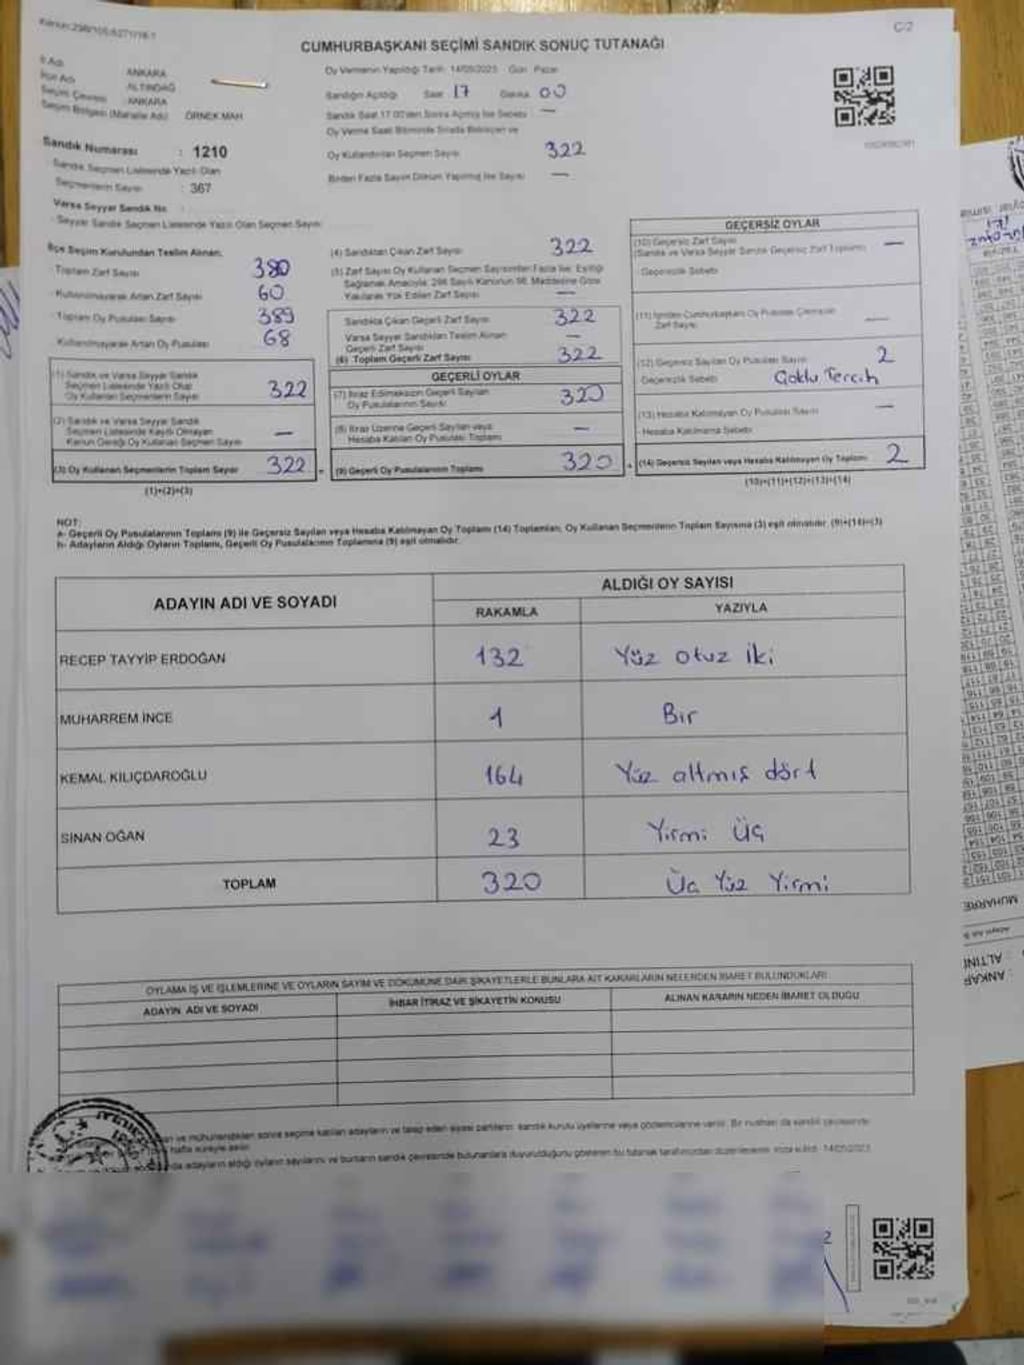 C/2
CUMHURBAŞKANI SEÇİMİ SANDIK SONUÇ TUTANAĞI
İl Adı ANKARA
İlçe Adı ALTINDAĞ
Seçim Çevresi : ANKARA
Seçim Bölgesi (Mahalle Adı) ÖRNEK MAH
Sandık Numarası : 1210
Sandık Seçmen Listesinde Yazılı Olan
Seçmenlerin Sayısı : 367
Varsa Seyyar Sandık No :
- Seyyar Sandık Seçmen Listesinde Yazılı Olan Seçmen Sayısı:
Oy Vermenin Yapıldığı Tarih: 14/05/2023 Gün: Pazar
Sandığın Açıldığı Saat 17 Dakika 00
Sandık Saat 17.00'den Sonra Açılmış İse Sebebi : —
Oy Verme Saati Bitiminde Sırada Bekleyen ve
Oy Kullandırılan Seçmen Sayısı 322
Birden Fazla Sayım Döküm Yapılmış İse Sayısı —
İlçe Seçim Kurulundan Teslim Alınan;
- Toplam Zarf Sayısı 380
- Kullanılmayarak Artan Zarf Sayısı 60
- Toplam Oy Pusulası Sayısı 389
- Kullanılmayarak Artan Oy Pusulası 68
(1) Sandık ve Varsa Seyyar Sandık
Seçmen Listesinde Yazılı Olup
Oy Kullanan Seçmenlerin Sayısı 322
(2) Sandık ve Varsa Seyyar Sandık
Seçmen Listesinde Kayıtlı Olmayan
Kanun Gereği Oy Kullanan Seçmen Sayısı —
(3) Oy Kullanan Seçmenlerin Toplam Sayısı 322
(1)+(2)=(3)
(4) Sandıktan Çıkan Zarf Sayısı 322
(5) Zarf Sayısı Oy Kullanan Seçmen Sayısından Fazla İse; Eşitliği
Sağlamak Amacıyla; 298 Sayılı Kanunun 98. Maddesine Göre
Yakılarak Yok Edilen Zarf Sayısı —
Sandıkta Çıkan Geçerli Zarf Sayısı 322
Varsa Seyyar Sandıktan Teslim Alınan
Geçerli Zarf Sayısı —
(6) Toplam Geçerli Zarf Sayısı 322
GEÇERLİ OYLAR
(7) İtiraz Edilmeksizin Geçerli Sayılan
Oy Pusulalarının Sayısı 320
(8) İtiraz Üzerine Geçerli Sayılan veya
Hesaba Katılan Oy Pusulası Toplamı —
(9) Geçerli Oy Pusulalarının Toplamı 320
GEÇERSİZ OYLAR
(10) Geçersiz Zarf Sayısı —
(Sandık ve Varsa Seyyar Sandık Geçersiz Zarf Toplamı)
- Geçersizlik Sebebi
(11) İçinden Cumhurbaşkanı Oy Pusulası Çıkmayan
Zarf Sayısı —
(12) Geçersiz Sayılan Oy Pusulası Sayısı 2
- Geçersizlik Sebebi Çoklu Tercih
(13) Hesaba Katılmayan Oy Pusulası Sayısı —
- Hesaba Katılmama Sebebi
(14) Geçersiz Sayılan veya Hesaba Katılmayan Oy Toplamı 2
(10)+(11)+(12)+(13)=(14)
NOT:
a- Geçerli Oy Pusulalarının Toplamı (9) ile Geçersiz Sayılan veya Hesaba Katılmayan Oy Toplamı (14) Toplamları, Oy Kullanan Seçmenlerin Toplam Sayısına (3) eşit olmalıdır. (9)+(14)=(3)
b- Adayların Aldığı Oyların Toplamı, Geçerli Oy Pusulalarının Toplamına (9) eşit olmalıdır.
ADAYIN ADI VE SOYADI ALDIĞI OY SAYISI
RAKAMLA YAZIYLA
RECEP TAYYİP ERDOĞAN 132 Yüz otuz iki
MUHARREM İNCE 1 Bir
KEMAL KILIÇDAROĞLU 164 Yüz altmış dört
SİNAN OĞAN 23 Yirmi Üç
TOPLAM 320 Üç Yüz Yirmi
OYLAMA İŞ VE İŞLEMLERİNE VE OYLARIN SAYIM VE DÖKÜMÜNE DAİR ŞİKAYETLERLE BUNLARA AİT KARARLARIN NELERDEN İBARET BULUNDUKLARI
ADAYIN ADI VE SOYADI İHBAR İTİRAZ VE ŞİKAYETİN KONUSU ALINAN KARARIN NEDEN İBARET OLDUĞU
ve mühürlendikten sonra seçime katılan adayların ve talep eden siyasi partilerin sandık kurulu üyelerine veya gözlemcilerine verilir. Bir nüshası da sandık çevresinde
hafta süreyle asılır.
adayların aldığı oyların sayılarını ve bunların sandık çevresinde bulunanlara duyurulduğunu gösteren bu tutanak tarafımızdan düzenlenerek imza edildi. 14/05/2023